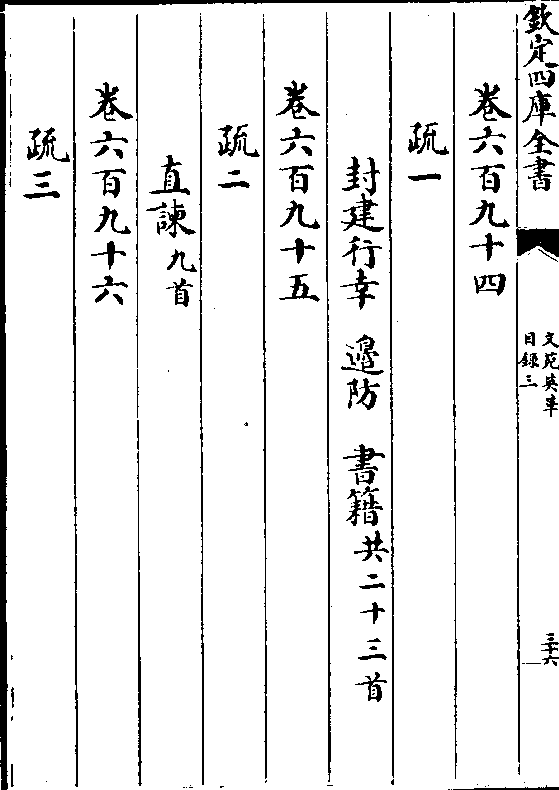 欽定四庫全書
文苑英華
目錄三
三十六
卷六百九十四
疏一
封建行幸 邊防 書籍共二十三首
卷六百九十五
疏二
直諫九首
卷六百九十六
疏三